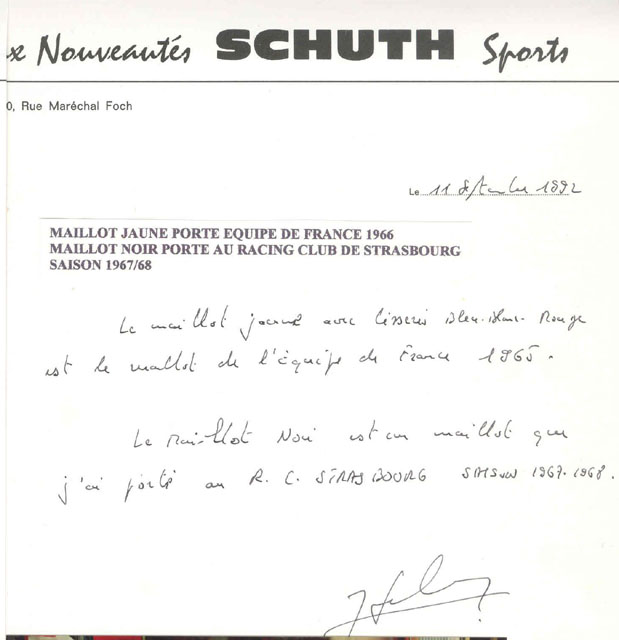 Nouveautés SCHUTH Sports
0, Rue Maréchal Foch
Le 11 septembre 1992
MAILLOT JAUNE PORTE EQUIPE DE FRANCE 1966
MAILLOT NOIR PORTE AU RACING CLUB DE STRASBOURG
SAISON 1967/68
Le maillot jaune avec Bleu-Blanc-Rouge
est le maillot de l'équipe de France 1965.
Le Maillot Noir est un maillot que
j'ai porté au R. C. STRASBOURG SAISON 1967-1968.